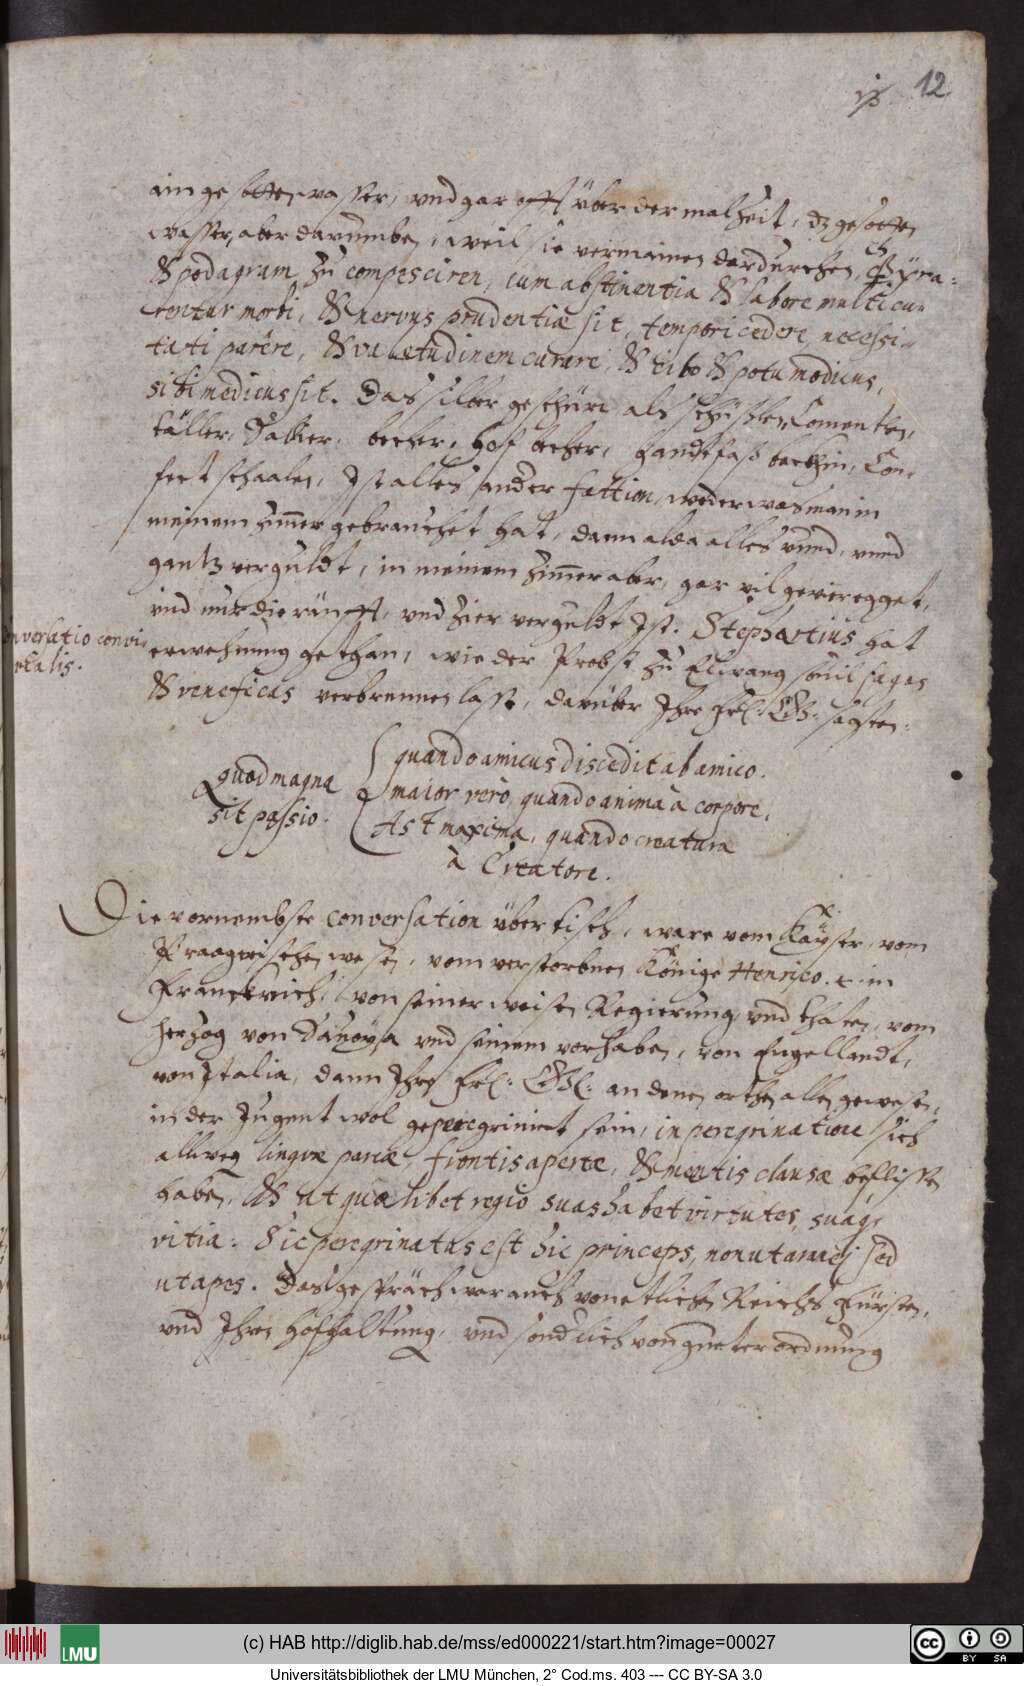 12
ain gesotten wasser, vnd gar offt über der malzeit, dz gesotten
wasser, aber darumben, weil sie vermainen dardurchen, Chyra-
& podagram zu compesciren, cum abstinentia & labore multi cu-
rentur morbi, & nervus prudentiæ sit, tempori cedere, necessi-
tati parere, & valetudinem curare, & cibo & potu modicus,
sibi medicus sit. Das silber geschürr als schüsslen, Comenten,
täller, Salier, becher, Hof becher, Handtfaß beckhin, Con-
fect schaalen, Ist alles ander faction, weder was man in
meinem zimer gebrauchet hat, dann alda alles rund, vnnd
gantz verguldt, in meinem Zimmer aber, gar vil geviregget,
vnd nur die räufft, vnd Zier verguldt Ist. Stephartius hat
Conversatio convi-
vialis.
erwehnung gethan, wie der Probst zu Elwang souil sagas
& veneficas verbrennen lasse, darüber Ihre Frl: Gl: sagten:
Quod magna
sit passio.
quando amicus discedit ab amico.
maior verò, quando anima à corpore,
Ast maxima, quando creatura
à Creatore.
Die vornembste conversation über tisch, ware vom Kayser, vom
Praagerischen wesen, vom verstorbnen Könige Henrico 4. in
Franckreich, von seiner weisen Regierung vnd thaten, vom
herzog von Sauoya vnd seinem vorhaben, von Engellandt,
von Italia, dann Ihre Frl: Gl: an denen orthen allen gewesen,
in der Jugent wol geperegriniert sein, in peregrinatione sich
allweg linguæ parcæ, frontis apertæ, & mentis clausæ beflissen
haben, & ut quælibet regio suas habet virtutes, suaq;
vitia: Sic peregrinatus est hic princeps, non ut aranei sed
ut apes. Das gespräch war auch von etlichen Reichs Fürsten,
vnd Ihrer Hofhaltung, vnd sonderlich von gueter ordnung
(c) HAB http://diglib.hab.de/mss/ed000221/start.htm?image=00027
LMU
cc BY SA
Universitätsbibliothek der LMU München, 2° Cod.ms. 403 --- CC BY-SA 3.0